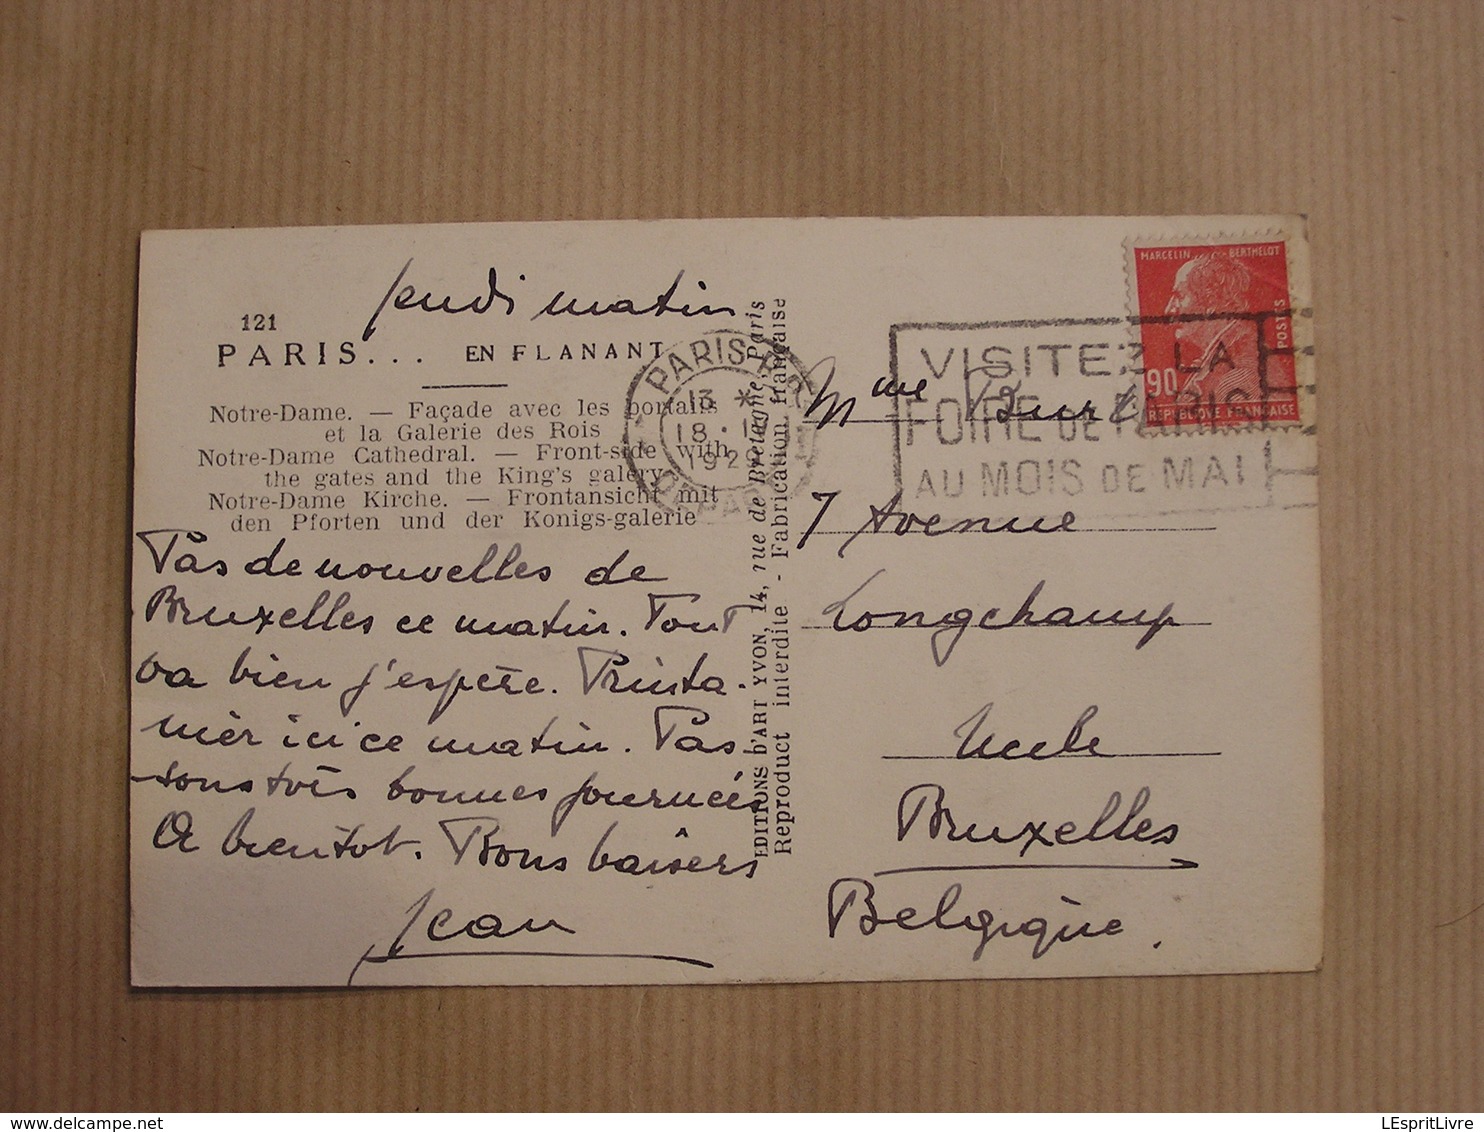 Jeudi matin
121
PARIS... EN FLANANT
Notre-Dame. — Façade avec les portails
et la Galerie des Rois
Notre-Dame Cathedral. — Front-side with
the gates and the King's galery
Notre-Dame Kirche. — Frontansicht mit
den Pforten und der Konigs-galerie
Pas de nouvelles de
Bruxelles ce matin. Tout
va bien j'espère. Printa-
nier ici ce matin. Pas
sons très bonnes journées
A bientot. Bons baisers
Jean
EDITIONS D'ART YVON, 14, rue de Bretagne, Paris
Reproduct interdite - Fabrication française
PARIS
13 *
18
DEPART
VISITEZ LA
FOIRE DE PARIS
AU MOIS DE MAI
MARCELIN BERTHELOT
POSTES
90
REPUBLIQUE FRANÇAISE
Mme
7 Avenue
Longchamp
Uccle
Bruxelles
Belgique.
LEspritLivre